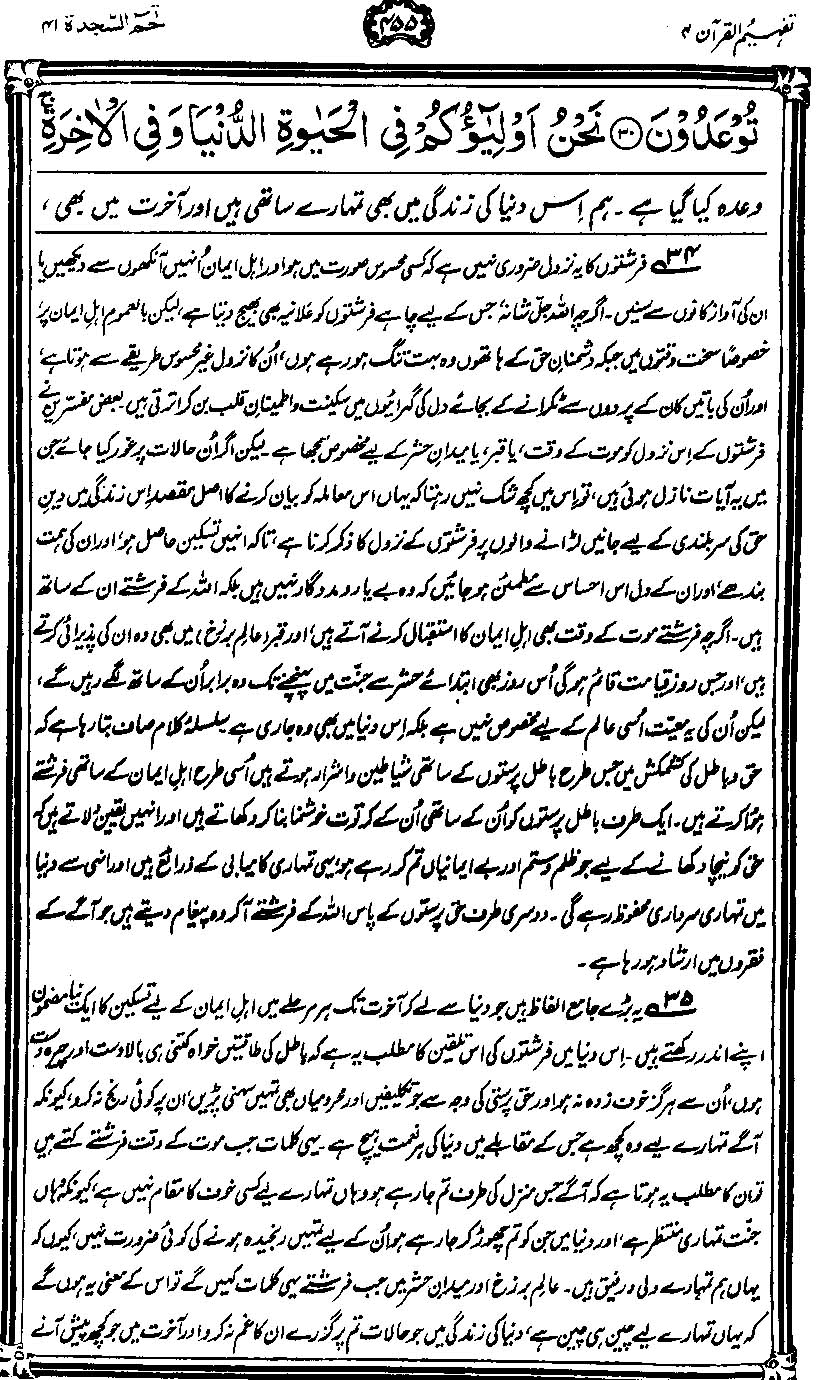 تفہیم القرآن ۴
۴۵۵
حٰمٓ السّجدة ۴۱
تُوْعَدُوْنَ ﴿۳۰﴾ نَحْنُ اَوْلِيٰٓؤُكُمْ فِى الْحَيٰوةِ الدُّنْيَا وَفِى الْاٰخِرَةِ ۚ
وعدہ کیا گیا ہے۔ ہم اِس دنیا کی زندگی میں بھی تمہارے ساتھی ہیں اور آخرت میں بھی،
۳۴ فرشتوں کا یہ نزول ضروری نہیں ہے کہ کسی محسوس صورت میں ہو اور اہلِ ایمان اُنہیں آنکھوں سے دیکھیں یا
ان کی آواز کانوں سے سنیں۔ اگرچہ اللہ جل شانہٗ جس کے لیے چاہے فرشتوں کو علانیہ بھی بھیج دیتا ہے، لیکن بالعموم اہلِ ایمان پر،
خصوصًا سخت وقتوں میں جبکہ دشمنانِ حق کے ہاتھوں وہ بہت تنگ ہو رہے ہوں، اُن کا نزول غیر محسوس طریقے سے ہوتا ہے،
اور اُن کی باتیں کان کے پردوں سے ٹکرانے کے بجائے دل کی گہرائیوں میں سکینت و اطمینانِ قلب بن کر اترتی ہیں۔ بعض مفسرین نے
فرشتوں کے اِس نزول کو موت کے وقت، یا قبر، یا میدانِ حشر کے لیے مخصوص سمجھا ہے۔ لیکن اگر اُن حالات پر غور کیا جائے جن
میں یہ آیات نازل ہوئی ہیں، تو اِس میں کچھ شک نہیں رہتا کہ یہاں اس معاملہ کو بیان کرنے کا اصل مقصد اِس زندگی میں دینِ
حق کی سربلندی کے لیے جانیں لڑانے والوں پر فرشتوں کے نزول کا ذکر کرنا ہے، تاکہ انہیں تسکین حاصل ہو، اور ان کی ہمت
بندھے، اور ان کے دل اس احساس سے مطمئن ہو جائیں کہ وہ بے یار و مددگار نہیں ہیں بلکہ اللہ کے فرشتے ان کے ساتھ
ہیں۔ اگرچہ فرشتے موت کے وقت بھی اہلِ ایمان کا استقبال کرنے آتے ہیں، اور قبر (عالمِ برزخ) میں بھی وہ ان کی پذیرائی کرتے
ہیں، اور جس روز قیامت قائم ہوگی اُس روز بھی ابتدائے حشر سے جنت میں پہنچنے تک وہ برابر اُن کے ساتھ لگے رہیں گے،
لیکن اُن کی یہ معیت اُسی عالم کے لیے مخصوص نہیں ہے بلکہ اِس دنیا میں بھی وہ جاری ہے۔ سلسلۂ کلام صاف بتا رہا ہے کہ
حق و باطل کی کشمکش میں جس طرح باطل پرستوں کے ساتھی شیاطین و اشرار ہوتے ہیں اُسی طرح اہلِ ایمان کے ساتھی فرشتے
ہوا کرتے ہیں۔ ایک طرف باطل پرستوں کو اُن کے ساتھی اُن کے کرتوت خوشنما بنا کر دکھاتے ہیں اور انہیں یقین دلاتے ہیں کہ
حق کو نیچا دکھانے کے لیے جو ظلم و ستم اور بے ایمانیاں تم کر رہے ہو یہی تمہاری کامیابی کے ذرائع ہیں اور انہی سے دنیا
میں تمہاری سرداری محفوظ رہے گی۔ دوسری طرف حق پرستوں کے پاس اللہ کے فرشتے آکر وہ پیغام دیتے ہیں جو آگے کے
فقروں میں ارشاد ہو رہا ہے۔
۳۵ یہ بڑے جامع الفاظ ہیں جو دنیا سے لے کر آخرت تک ہر مرحلے میں اہلِ ایمان کے لیے تسکین کا ایک نیا مضمون
اپنے اندر رکھتے ہیں۔ اِس دنیا میں فرشتوں کی اس تلقین کا مطلب یہ ہے کہ باطل کی طاقتیں خواہ کتنی ہی بالادست اور چیرہ دست
ہوں، اُن سے ہرگز خوف زدہ نہ ہو اور حق پرستی کی وجہ سے جو تکلیفیں اور محرومیاں بھی تمہیں سہنی پڑیں، ان پر کوئی رنج نہ کرو، کیونکہ
آگے تمہارے لیے وہ کچھ ہے جس کے مقابلے میں دنیا کی ہر نعمت ہیچ ہے۔ یہی کلمات جب موت کے وقت فرشتے کہتے ہیں
تو ان کا مطلب یہ ہوتا ہے کہ آگے جس منزل کی طرف تم جا رہے ہو وہاں تمہارے لیے کسی خوف کا مقام نہیں ہے، کیونکہ وہاں
جنت تمہاری منتظر ہے، اور دنیا میں جن کو تم چھوڑ کر جا رہے ہو اُن کے لیے تمہیں رنجیدہ ہونے کی کوئی ضرورت نہیں، کیوں کہ
یہاں ہم تمہارے ولی و رفیق ہیں۔ عالمِ برزخ اور میدانِ حشر میں جب فرشتے یہی کلمات کہیں گے تو اس کے معنی یہ ہوں گے
کہ یہاں تمہارے لیے چین ہی چین ہے، دنیا کی زندگی میں جو حالات تم پر گزرے ان کا غم نہ کرو اور آخرت میں جو کچھ پیش آنے